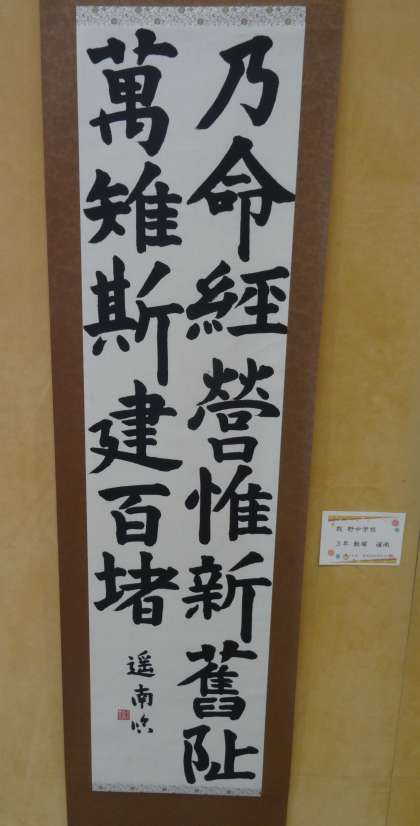 乃命經營惟新舊阯
萬雉斯建百堵
遥南
野中学校
3年